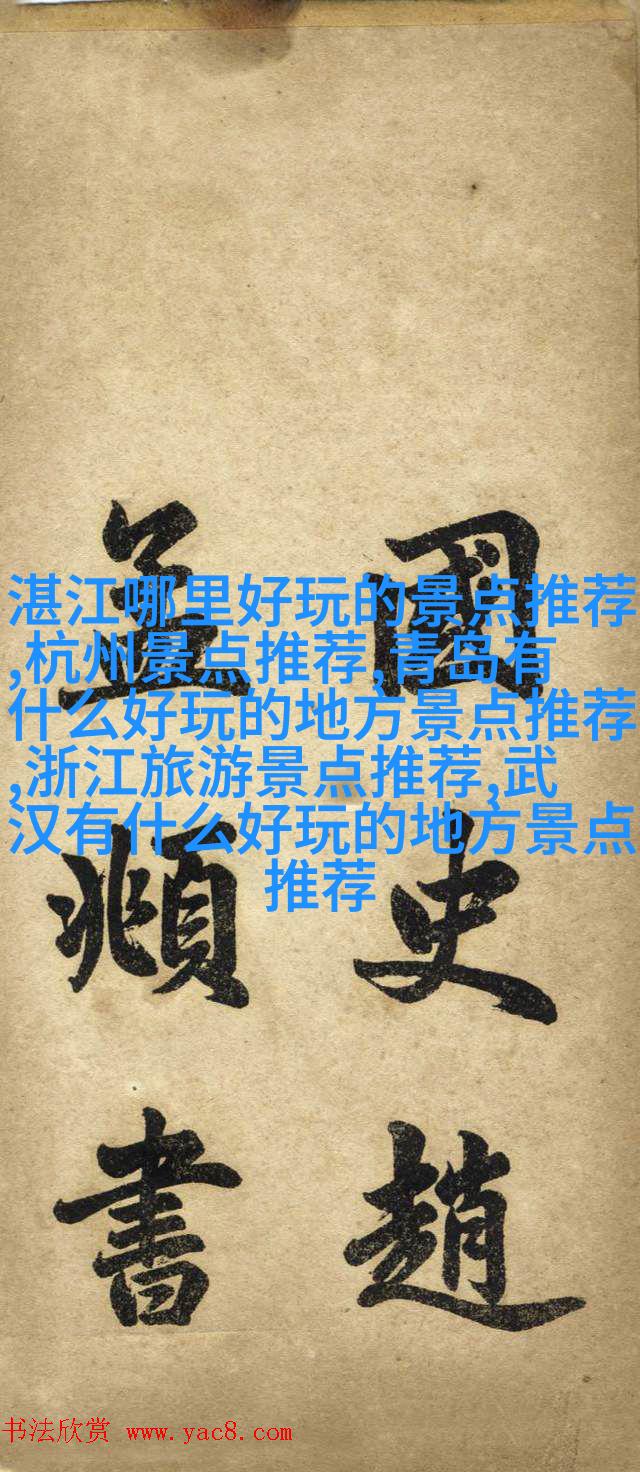 國史趙
孟頫書
湛江哪里好玩的景点推荐
,杭州景点推荐,青岛有
什么好玩的地方景点推荐
,浙江旅游景点推荐,武
汉有什么好玩的地方景点
推荐
书法欣赏 www.yac8.com